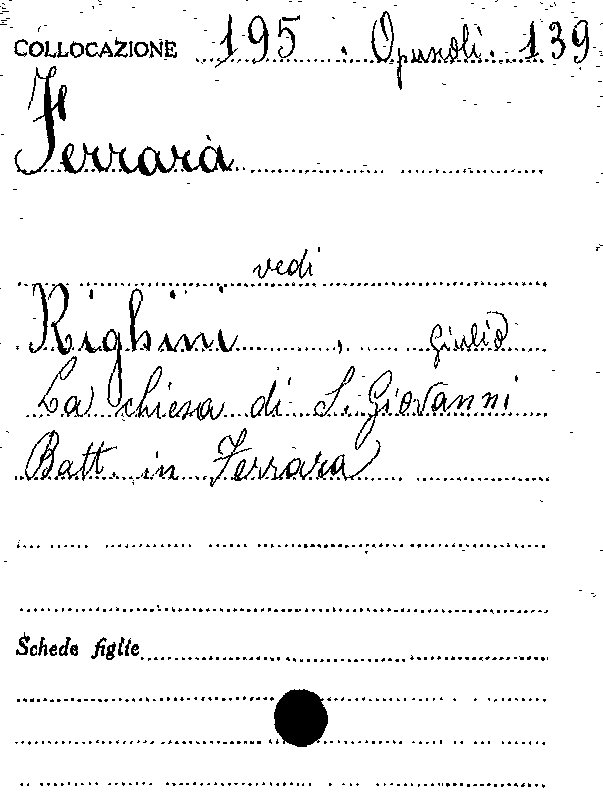 COLLOCAZIONE 195 . Opuscoli. 139
Ferrara
vedi
Righini , Giulio
La chiesa di S. Giovanni
Batt. in Ferrara
Schede figlie